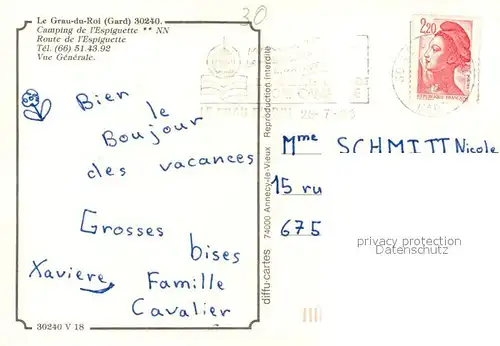 30
Le Grau-du-Roi (Gard) 30240.
Camping de l'Espiguette ** NN
Route de l'Espiguette
Tél. (66) 51.43.92
Vue Générale.
Bien le
Boujour
des vacances
Grosses
bises
Xaviere, Famille
Cavalier
30240 V 18
diffu-cartes 74000 Annecy-le-Vieux Reproduction Interdite
2,20
Mme SCHMITT Nicole
15 ru
675
privacy protection
Datenschutz